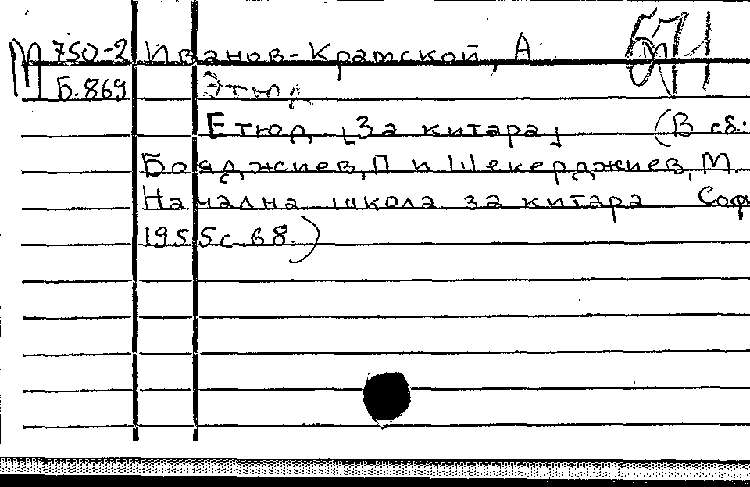 М 750-2 Иванов-Крамской, А
Б.869 Этюд
Етюд [За китара] (В сб.:
Бояджиев, П и Шекерджиев, М.
Начална школа за китара Соф
1955 с 68.)